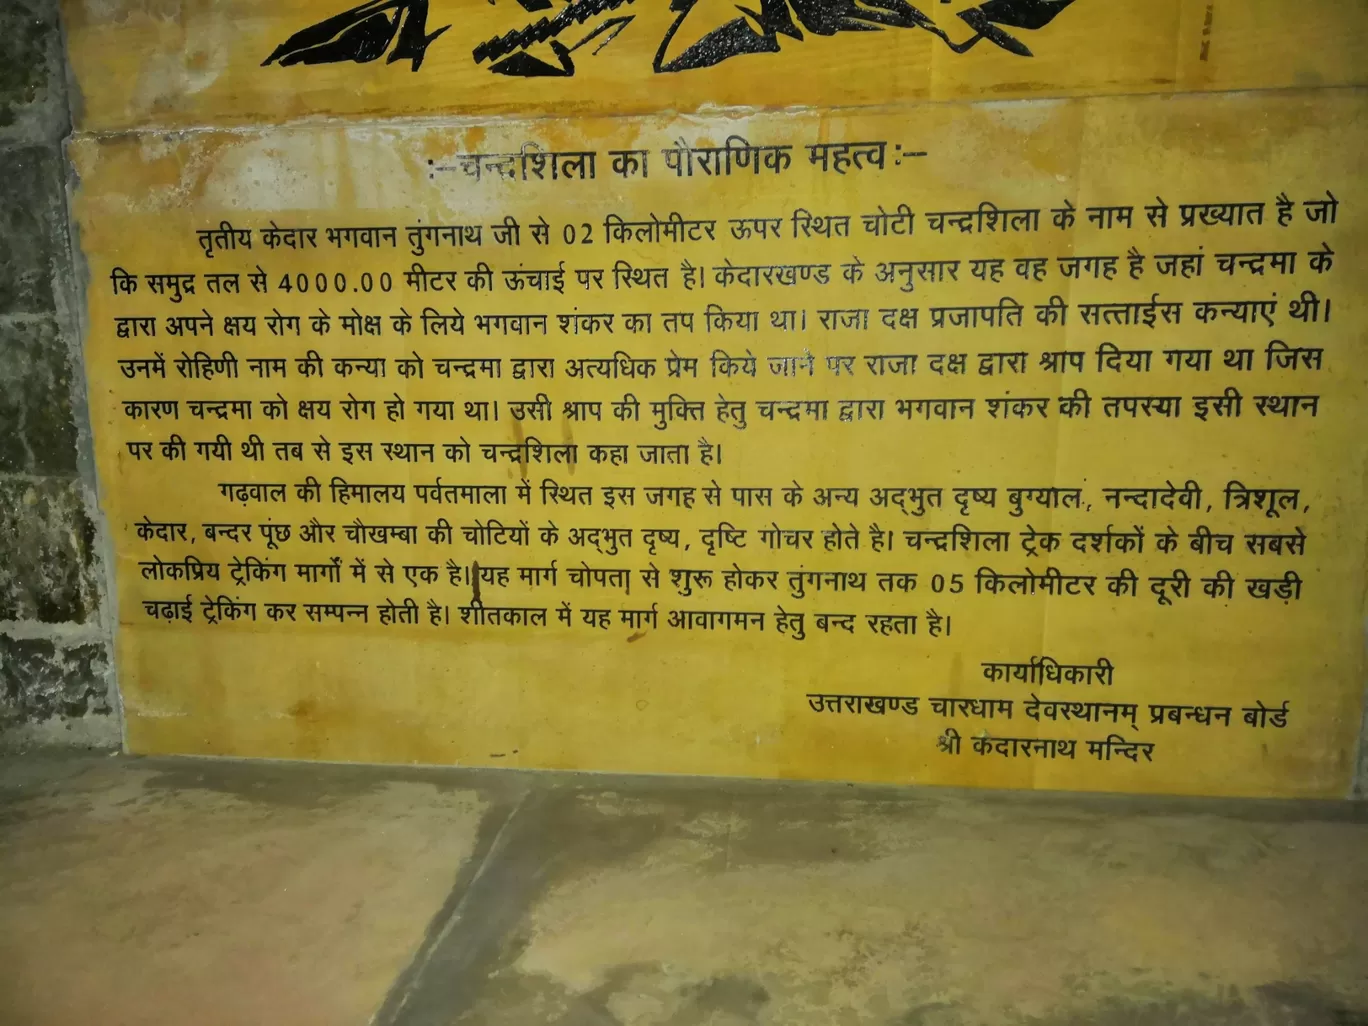 :–चन्द्रशिला का पौराणिक महत्व:–
तृतीय केदार भगवान तुंगनाथ जी से 02 किलोमीटर ऊपर स्थित चोटी चन्द्रशिला के नाम से प्रख्यात है जो
कि समुद्र तल से 4000.00 मीटर की ऊंचाई पर स्थित है। केदारखण्ड के अनुसार यह वह जगह है जहां चन्द्रमा के
द्वारा अपने क्षय रोग के मोक्ष के लिये भगवान शंकर का तप किया था। राजा दक्ष प्रजापति की सत्ताईस कन्याएं थी।
उनमें रोहिणी नाम की कन्या को चन्द्रमा द्वारा अत्यधिक प्रेम किये जाने पर राजा दक्ष द्वारा श्राप दिया गया था जिस
कारण चन्द्रमा को क्षय रोग हो गया था। उसी श्राप की मुक्ति हेतु चन्द्रमा द्वारा भगवान शंकर की तपस्या इसी स्थान
पर की गयी थी तब से इस स्थान को चन्द्रशिला कहा जाता है।
गढ़वाल की हिमालय पर्वतमाला में स्थित इस जगह से पास के अन्य अद्‌भुत दृष्य बुग्याल, नन्दादेवी, त्रिशूल,
केदार, बन्दर पूंछ और चौखम्बा की चोटियों के अद्‌भुत दृष्य, दृष्टि गोचर होते है। चन्द्रशिला ट्रेक दर्शकों के बीच सबसे
लोकप्रिय ट्रेकिंग मार्गों में से एक है। यह मार्ग चोपता से शुरू होकर तुंगनाथ तक 05 किलोमीटर की दूरी की खड़ी
चढ़ाई ट्रेकिंग कर सम्पन्न होती है। शीतकाल में यह मार्ग आवागमन हेतु बन्द रहता है।
कार्याधिकारी
उत्तराखण्ड चारधाम देवस्थानम् प्रबन्धन बोर्ड
श्री केदारनाथ मन्दिर